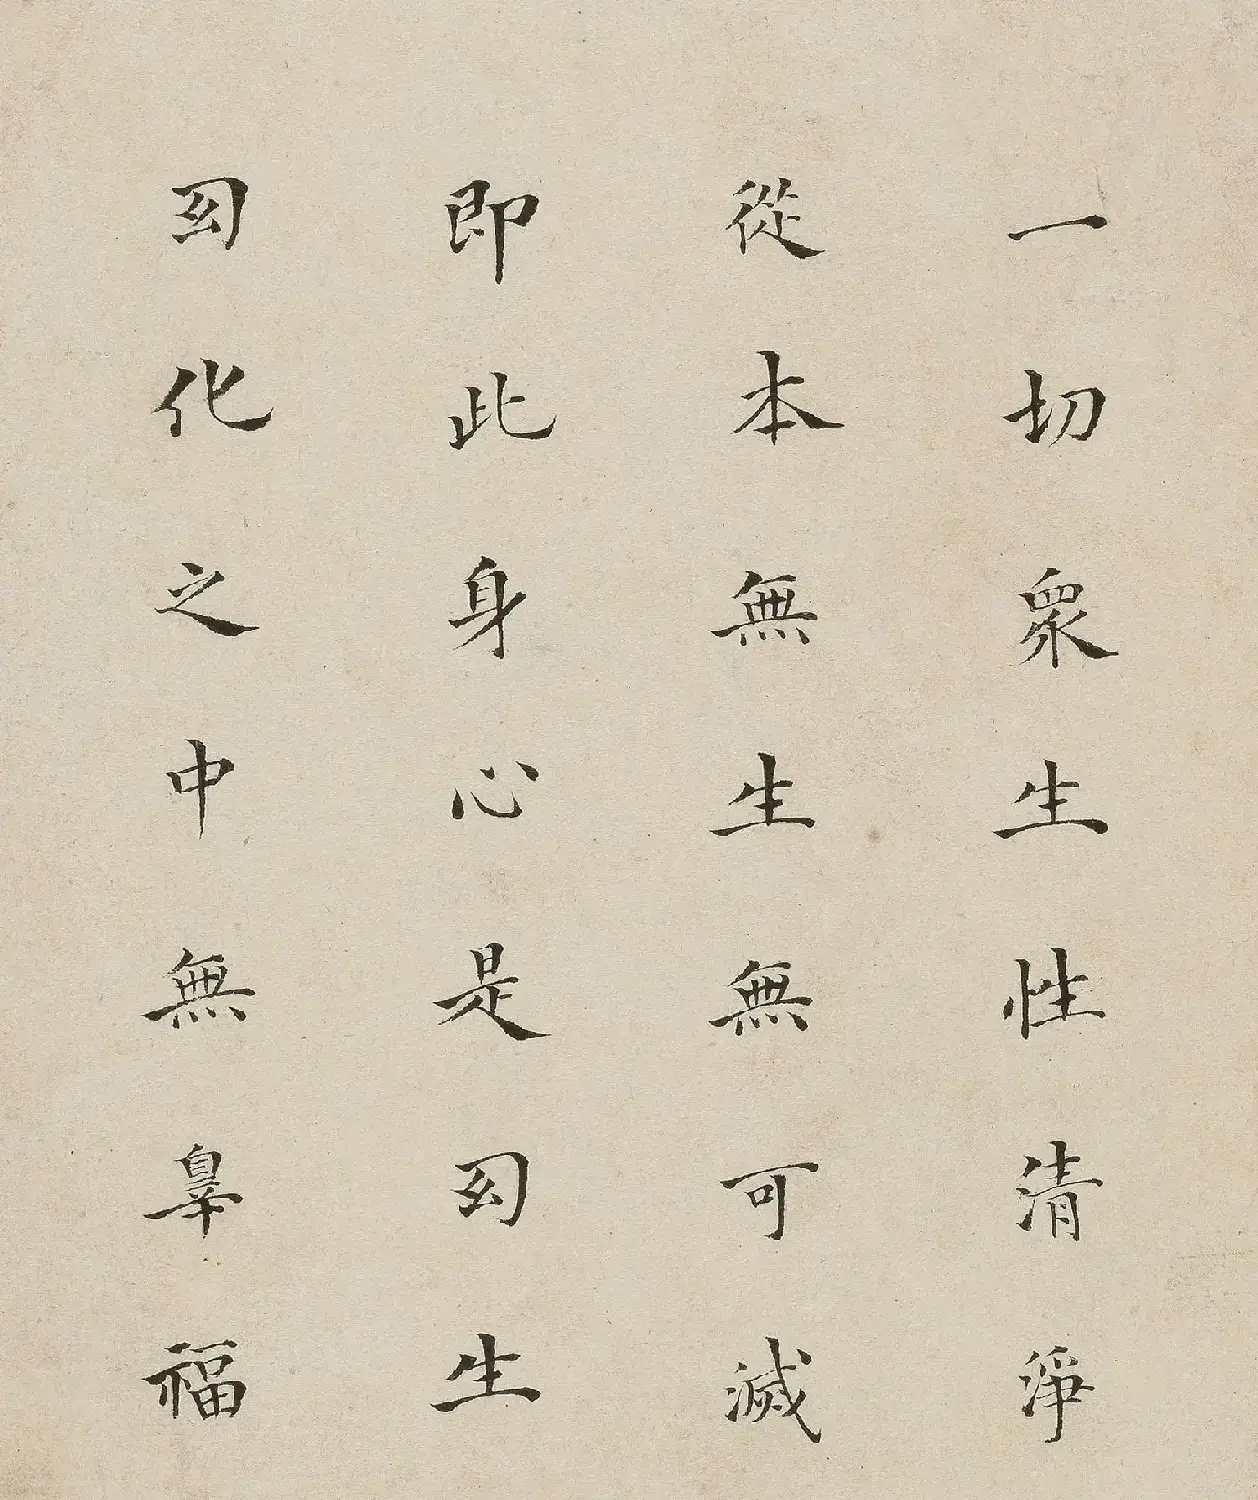 一切眾生性清淨
從本無生無可滅
即此身心是幻生
幻化之中無辠福